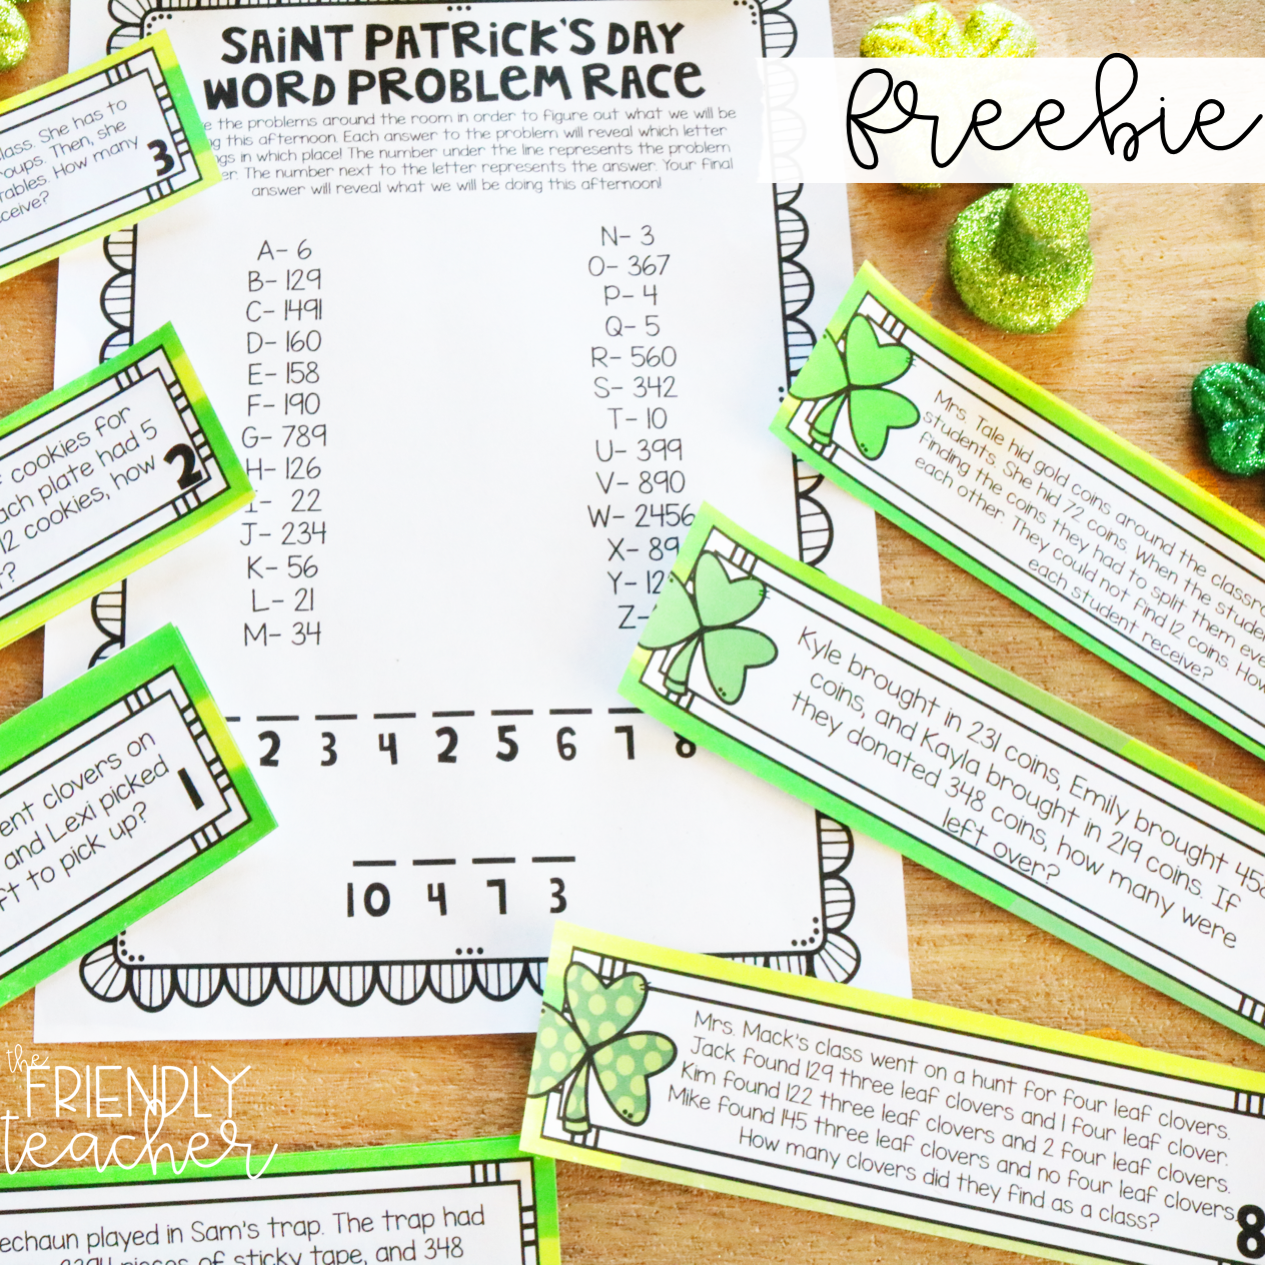 SAINT PATRICK'S DAY
WORD PROBLEM RACE
the problems around the room in order to figure out what we will be
this afternoon. Each answer to the problem will reveal which letter
in which place! The number under the line represents the problem
The number next to the letter represents the answer. Your final
answer will reveal what we will be doing this afternoon!
freebie
A- 6
B- 129
C- 1491
D- 160
E- 158
F- 190
G- 789
H- 126
I- 22
J- 234
K- 56
L- 21
M- 34
N- 3
O- 367
P- 4
Q- 5
R- 560
S- 342
T- 10
U- 399
V- 890
W- 2456
X- 89
Y- 12
Z-
2 3 4 2 5 6 7 8
10 4 7 3
class. She has to
Then, she
How many
3
cookies for
plate had 5
12 cookies, how
2
clovers on
and Lexi picked
to pick up?
1
Mrs. Tale hid gold coins around the
students. She hid 72 coins. When the
finding the coins they had to split them
each other. They could not find 12 coins. How
each student receive?
Kyle brought in 231 coins, Emily brought
coins, and Kayla brought in 219 coins. If
they donated 348 coins, how many were
left over?
Mrs. Mack's class went on a hunt for four leaf clovers.
Jack found 129 three leaf clovers and 1 four leaf clover.
Kim found 122 three leaf clovers and 2 four leaf clovers.
Mike found 145 three leaf clovers and no four leaf clovers.
How many clovers did they find as a class?
8
the
FRIENDLY
teacher
played in Sam's trap. The trap had
pieces of sticky tape, and 348